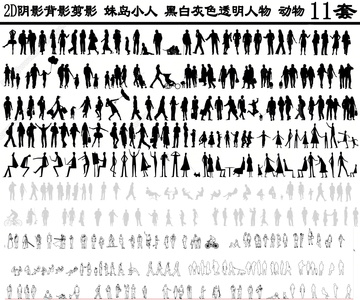 2D阴影背影剪影 妹岛小人 黑白灰色透明人物 动物 11套